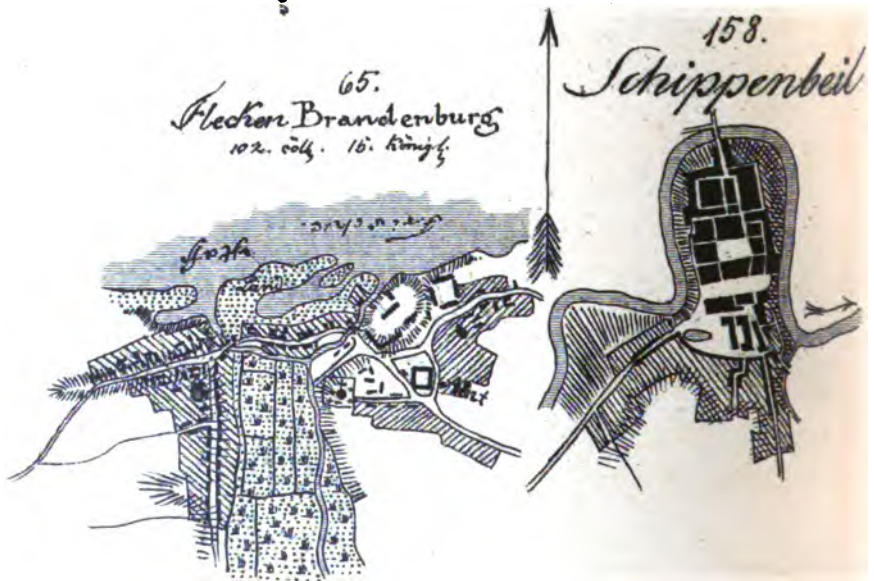 65.
Flecken Brandenburg
102. cöll. 16. Königl.
158.
Schippenbeil